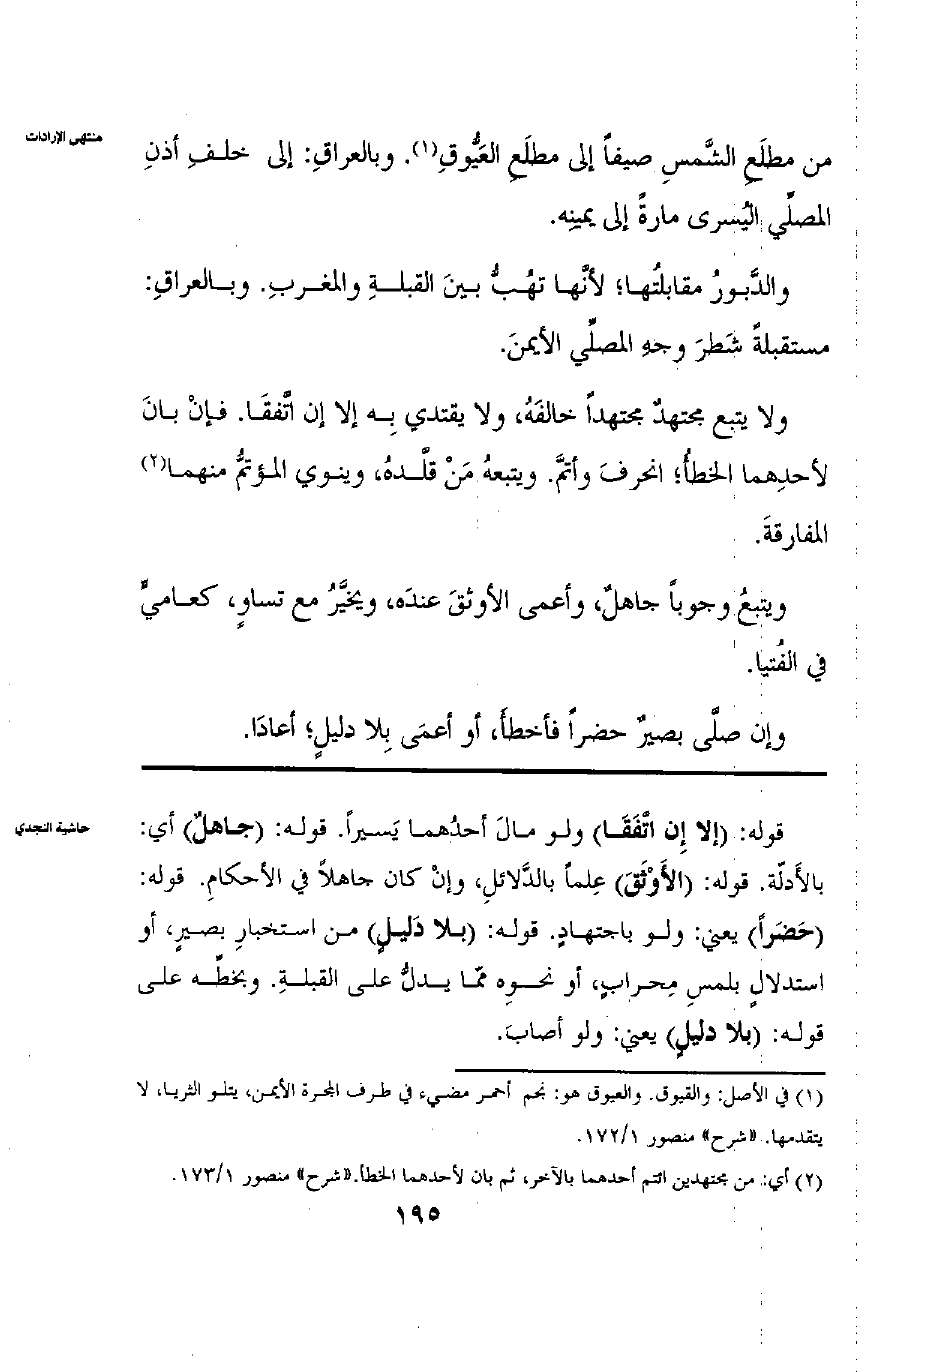 منتهى الإرادات
من مطلَعِ الشَّمسِ صيفاً إلى مطلَعِ العَيُّوقِ(١). وبالعراقِ: إلى خلفِ أذنِ
المصلِّي اليُسرى مارةً إلى يمينِه.
والدَّبورُ مقابلتُها؛ لأنَّها تهُبُّ بينَ القبلةِ والمغربِ. وبالعراقِ:
مستقبلةً شَطرَ وجهِ المصلِّي الأيمنَ.
ولا يتبع مجتهدٌ مجتهداً خالفَهُ، ولا يقتدي بِه إلا إن اتَّفقَا. فإنْ بانَ
لأحدِهما الخطأُ؛ انحرفَ وأتمَّ. ويتبعهُ مَنْ قلَّدهُ، وينوي المؤتمُّ منهما(٢)
المفارقةَ.
ويتبعُ وجوباً جاهلٌ، وأعمى الأوثقَ عندَه، ويخيَّرُ مع تساوٍ، كعاميٍّ
في الفُتيا.
وإن صلَّى بصيرٌ حضراً فأخطأَ، أو أعمَى بِلا دليلٍ؛ أعادَا.
حاشية النجدي
قوله: (إلا إِن اتَّفَقَا) ولو مالَ أحدُهما يَسيراً. قوله: (جاهلٌ) أي:
بالأَدلّة. قوله: (الأَوْثَقَ) عِلماً بالدَّلائلِ، وإنْ كان جاهلاً في الأحكامِ. قوله:
(حَضَراً) يعني: ولو باجتهادٍ. قوله: (بلا دَليلٍ) من استخبارِ بصيرٍ، أو
استدلالٍ بلمسِ مِحرابٍ، أو نحوِه ممَّا يدلُّ على القبلةِ. وبخطِّه على
قوله: (بلا دليلٍ) يعني: ولو أصابَ.
(١) في الأصل: والقيوق. والعيوق هو: نجم أحمر مضيء في طرف المجرة الأيمن، يتلو الثريا، لا
يتقدمها. «شرح» منصور ١/١٧٢.
(٢) أي: من مجتهدين ائتم أحدهما بالآخر، ثم بان لأحدهما الخطأ.«شرح» منصور ١/١٧٣.
١٩٥